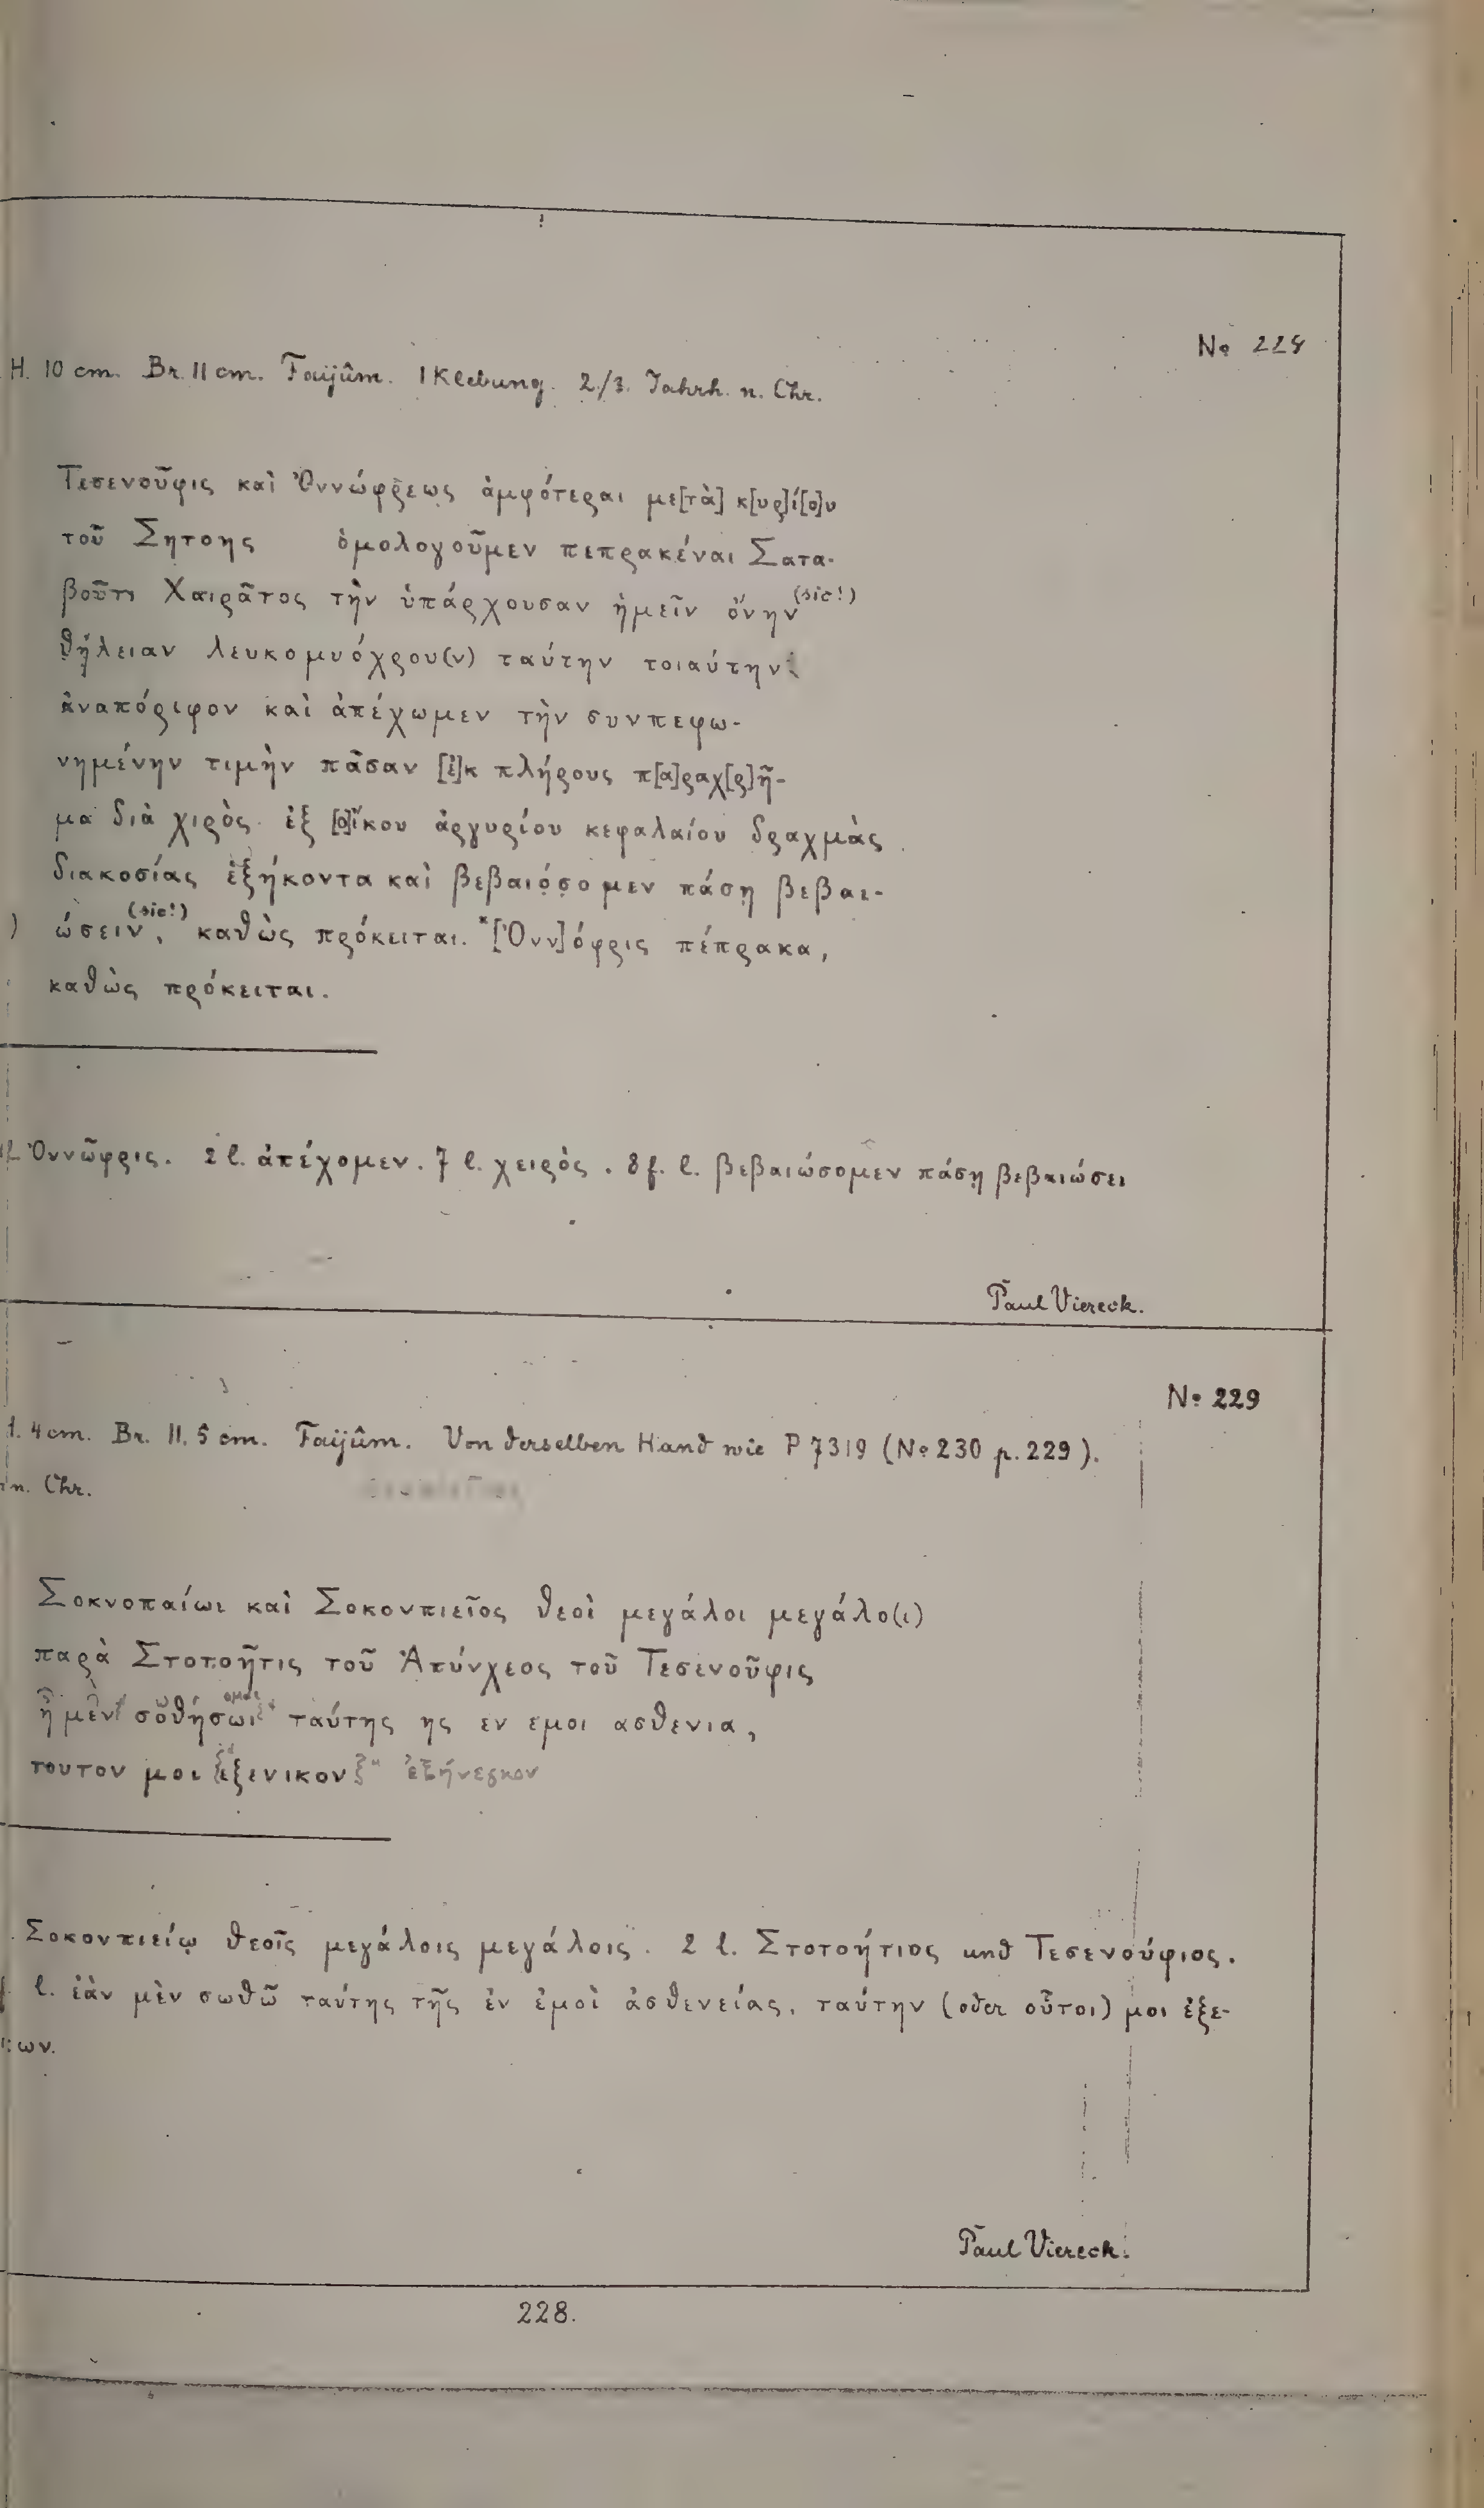 No 228
H. 10 cm. Br. 11 cm. Faijûm. 1 Klebung. 2./3. Jahrh. n. Chr.
Τεσενοῦφις καὶ Ὀννώφρεως ἀμφότεραι με[τὰ] κ[υρ]ί[ο]υ
τοῦ Σητοης ὁμολογοῦμεν πεπρακέναι Σατα-
βοῦτι Χαιρᾶτος τὴν ὑπάρχουσαν ἡμεῖν ὄνην (sic!)
θήλειαν λευκομυόχρου(ν) ταύτην τοιαύτην
ἀναπόριφον καὶ ἀπέχωμεν τὴν συνπεφω-
νημένην τιμὴν πᾶσαν [ἐ]κ πλήρους π[α]ραχ[ρ]ῆ-
μα διὰ χιρὸς ἐξ [ο]ἴκου ἀργυρίου κεφαλαίου δραχμὰς
διακοσίας ἑξήκοντα καὶ βεβαιόσομεν πάσῃ βεβαι-
) ώσειν (sic!), καθὼς πρόκειται. *[Ὀνν]όφρις πέπρακα,
καθὼς πρόκειται.
Ὀννῶφρις. 2 l. ἀπέχομεν. 7 l. χειρὸς. 8 f. l. βεβαιώσομεν πάσῃ βεβαιώσει
Paul Viereck.
No 229
4 cm. Br. 11.5 cm. Faijûm. Von derselben Hand wie P 7319 (No 230 p. 229).
n. Chr.
Σοκνοπαίωι καὶ Σοκονπιεῖος θεοὶ μεγάλοι μεγάλο(ι)
παρὰ Στοτοῆτις τοῦ Ἀπύνχεος τοῦ Τεσενοῦφις
ἦ μὲν σοθήσωι ταύτης ης εν εμοι ασθενια,
τουτον μοι ἐξενικον ἐξήνεγκον
Σοκονπιείῳ θεοῖς μεγάλοις μεγάλοις. 2 l. Στοτοήτιος und Τεσενούφιος.
l. ἐὰν μὲν σωθῶ ταύτης τῆς ἐν ἐμοὶ ἀσθενείας, ταύτην (oder οὗτοι) μοι ἐξε-
κων.
Paul Viereck.
228.